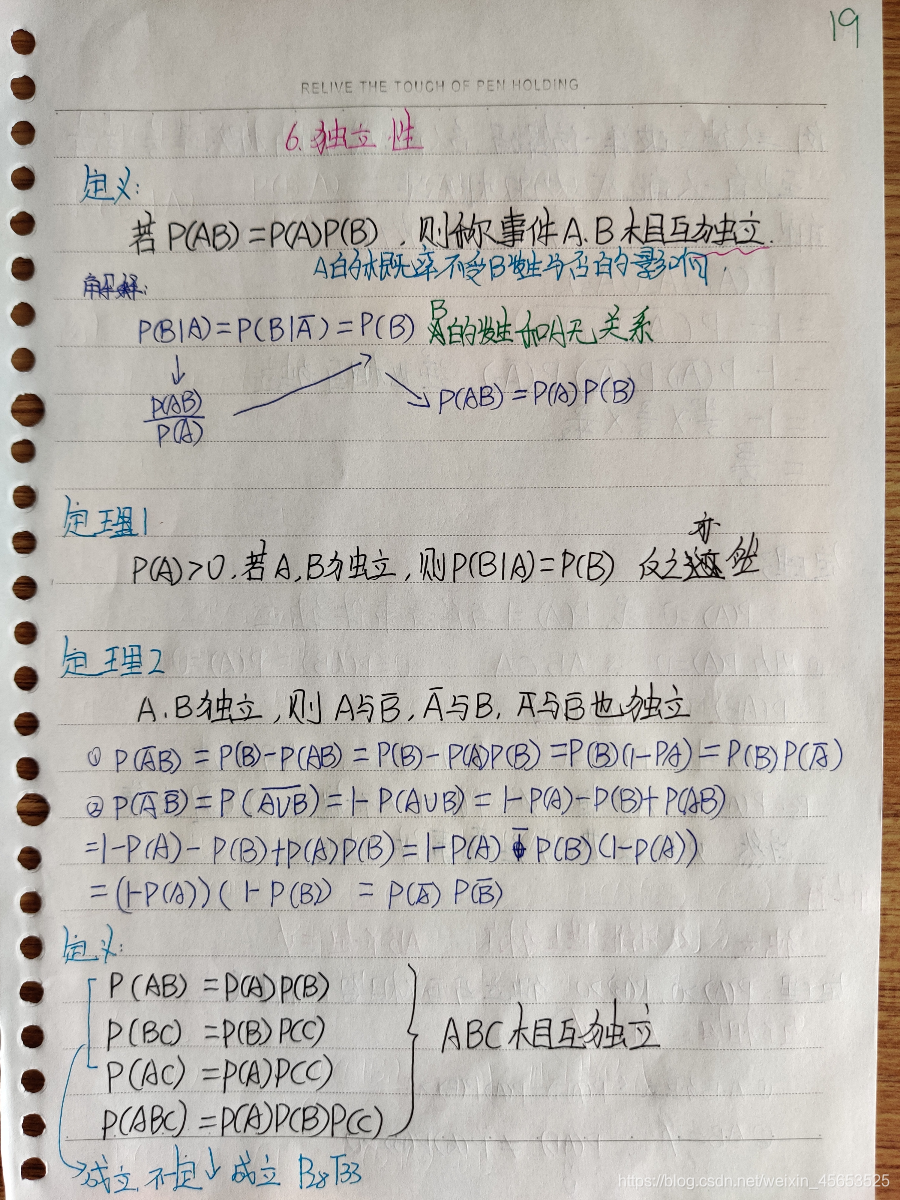 19
RELIVE THE TOUCH OF PEN HOLDING
6.独立性
定义:
若 P(AB)=P(A)P(B),则称事件A.B相互独立.
A的概率不受B发生与否的影响.
解释:
P(B|A)=P(B|A̅)=P(B) B的发生和A无关系
P(AB)/P(A)
P(AB)=P(A)P(B)
定理1
P(A)>0.若A,B独立,则P(B|A)=P(B) 反之亦然
定理2
A.B独立,则A与B̅,A̅与B,A̅与B̅也独立
① P(A̅B)=P(B)-P(AB)=P(B)-P(A)P(B)=P(B)(1-PA)=P(B)P(A̅)
② P(A̅B̅)=P(A̅∪̅B̅)=1-P(A∪B)=1-P(A)-P(B)+P(AB)
=1-P(A)-P(B)+P(A)P(B)=1-P(A)-P(B)(1-P(A))
=(1-P(A))(1-P(B))=P(A̅)P(B̅)
定义:
P(AB)=P(A)P(B)
P(BC)=P(B)P(C)
P(AC)=P(A)P(C)
ABC相互独立
P(ABC)=P(A)P(B)P(C)
成立 不一定↓成立 P28T33
https://blog.csdn.net/weixin_45653525